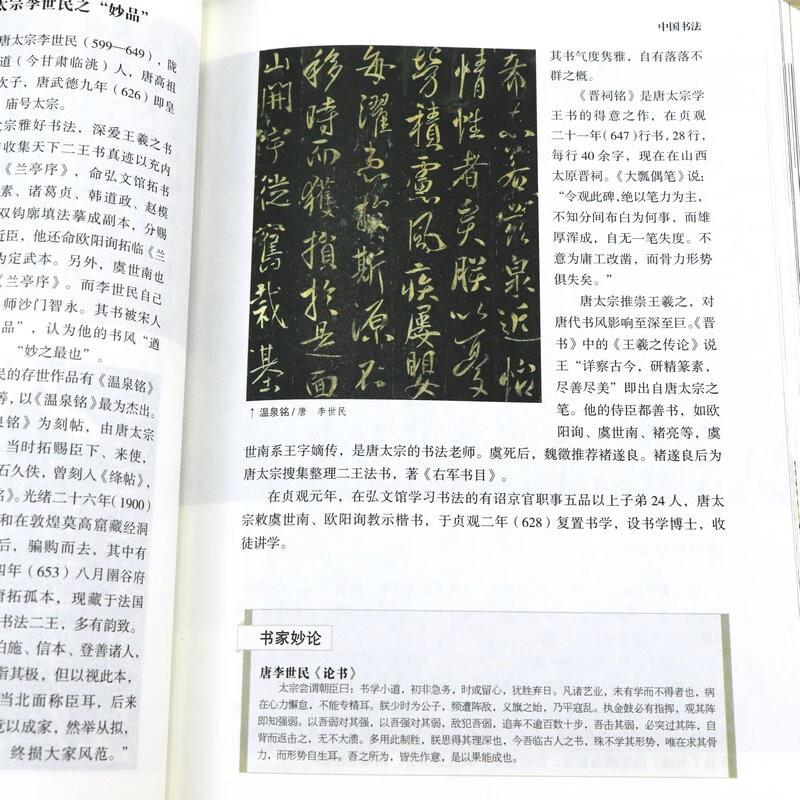 太宗李世民之“妙品”
唐太宗李世民（599—649），陇
道（今甘肃临洮）人，唐高祖
次子，唐武德九年（626）即皇
庙号太宗。
太宗雅好书法，深爱王羲之书
收集天下二王书真迹以充内
《兰亭序》，命弘文馆拓书
素、诸葛贞、韩道政、赵模
双钩廓填法摹成副本，分赐
近臣，他还命欧阳询拓临《兰
为定武本。另外，虞世南也
《兰亭序》。而李世民自己
师沙门智永。其书被宋人
品”，认为他的书风“遒
“妙之最也”。
民的存世作品有《温泉铭》
等，以《温泉铭》最为杰出。
泉铭》为刻帖，由唐太宗
当时拓赐臣下、来使，
石久佚，曾刻入《绛帖》，
》。光绪二十六年（1900）
和在敦煌莫高窟藏经洞
后，骗购而去，其中有
四年（653）八月圉谷府
唐拓孤本，现藏于法国
书法二王，多有韵致。
伯施、信本、登善诸人，
指其极，但以视此本，
当北面称臣耳，后来
竟以成家，然举从拟，
终损大家风范。”
中国书法
泰心若兹泉近怡
情性者矣朕以忧
劳积虑风疾屡婴
每濯患于斯源不
移时而获损于是面
山开宇从旧裁基
↑温泉铭/唐 李世民
其书气度隽雅，自有落落不
群之概。
《晋祠铭》是唐太宗学
王书的得意之作，在贞观
二十一年（647）行书，28行，
每行40余字，现在在山西
太原晋祠。《大瓢偶笔》说：
“令观此碑，绝以笔力为主，
不知分间布白为何事，而雄
厚浑成，自无一笔失度。不
意为庸工改凿，而骨力形势
俱失矣。”
唐太宗推崇王羲之，对
唐代书风影响至深至巨。《晋
书》中的《王羲之传论》说
王“详察古今，研精篆素，
尽善尽美”即出自唐太宗之
笔。他的侍臣都善书，如欧
阳询、虞世南、褚亮等，虞
世南系王字嫡传，是唐太宗的书法老师。虞死后，魏徵推荐褚遂良。褚遂良后为
唐太宗搜集整理二王法书，著《右军书目》。
在贞观元年，在弘文馆学习书法的有诏京官职事五品以上子弟24人，唐太
宗敕虞世南、欧阳询教示楷书，于贞观二年（628）复置书学，设书学博士，收
徒讲学。
书家妙论
唐李世民《论书》
太宗尝谓朝臣曰：书学小道，初非急务，时或留心，犹胜弃日。凡诸艺业，未有学而不得者也，病
在心力懈怠，不能专精耳。朕少时为公子，频遭阵敌，义旗之始，乃平寇乱。执金鼓必有指挥，观其阵
即知强弱。以吾弱对其强，以吾强对其弱，敌犯吾弱，追奔不逾百数十步，吾击其弱，必突过其阵，自
背而返击之，无不大溃。多用此制胜，朕思得其理深也，今吾临古人之书，殊不学其形势，唯在求其骨
力，而形势自生耳。吾之所为，皆先作意，是以果能成也。